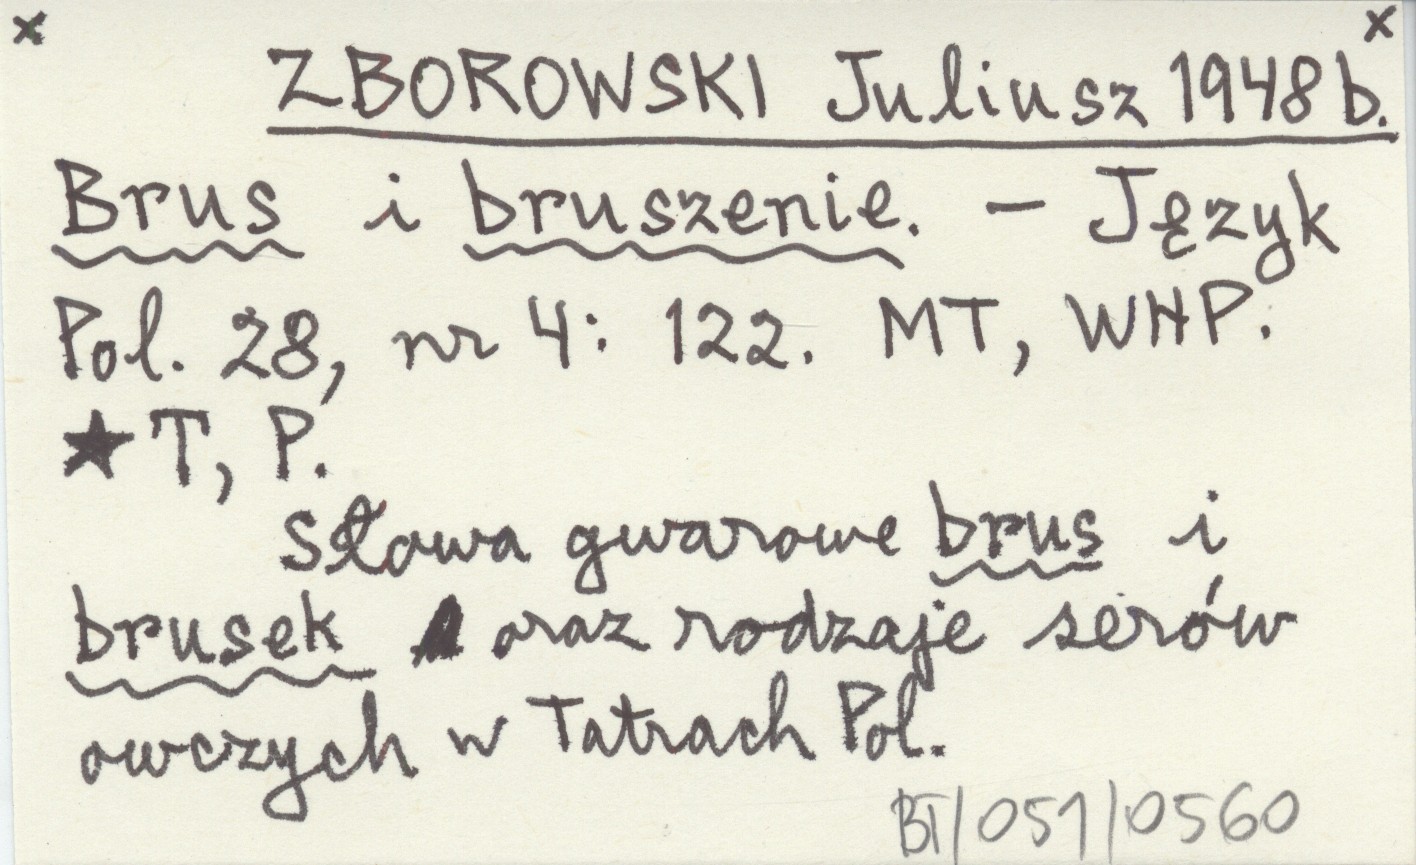 x x
ZBOROWSKI Juliusz 1948b.
Brus i bruszenie. – Język
Pol. 28, nr 4: 122. MT, WHP.
★ T, P.
Słowa gwarowe brus i
brusek oraz rodzaje serów
owczych w Tatrach Pol.
BT/051/0560